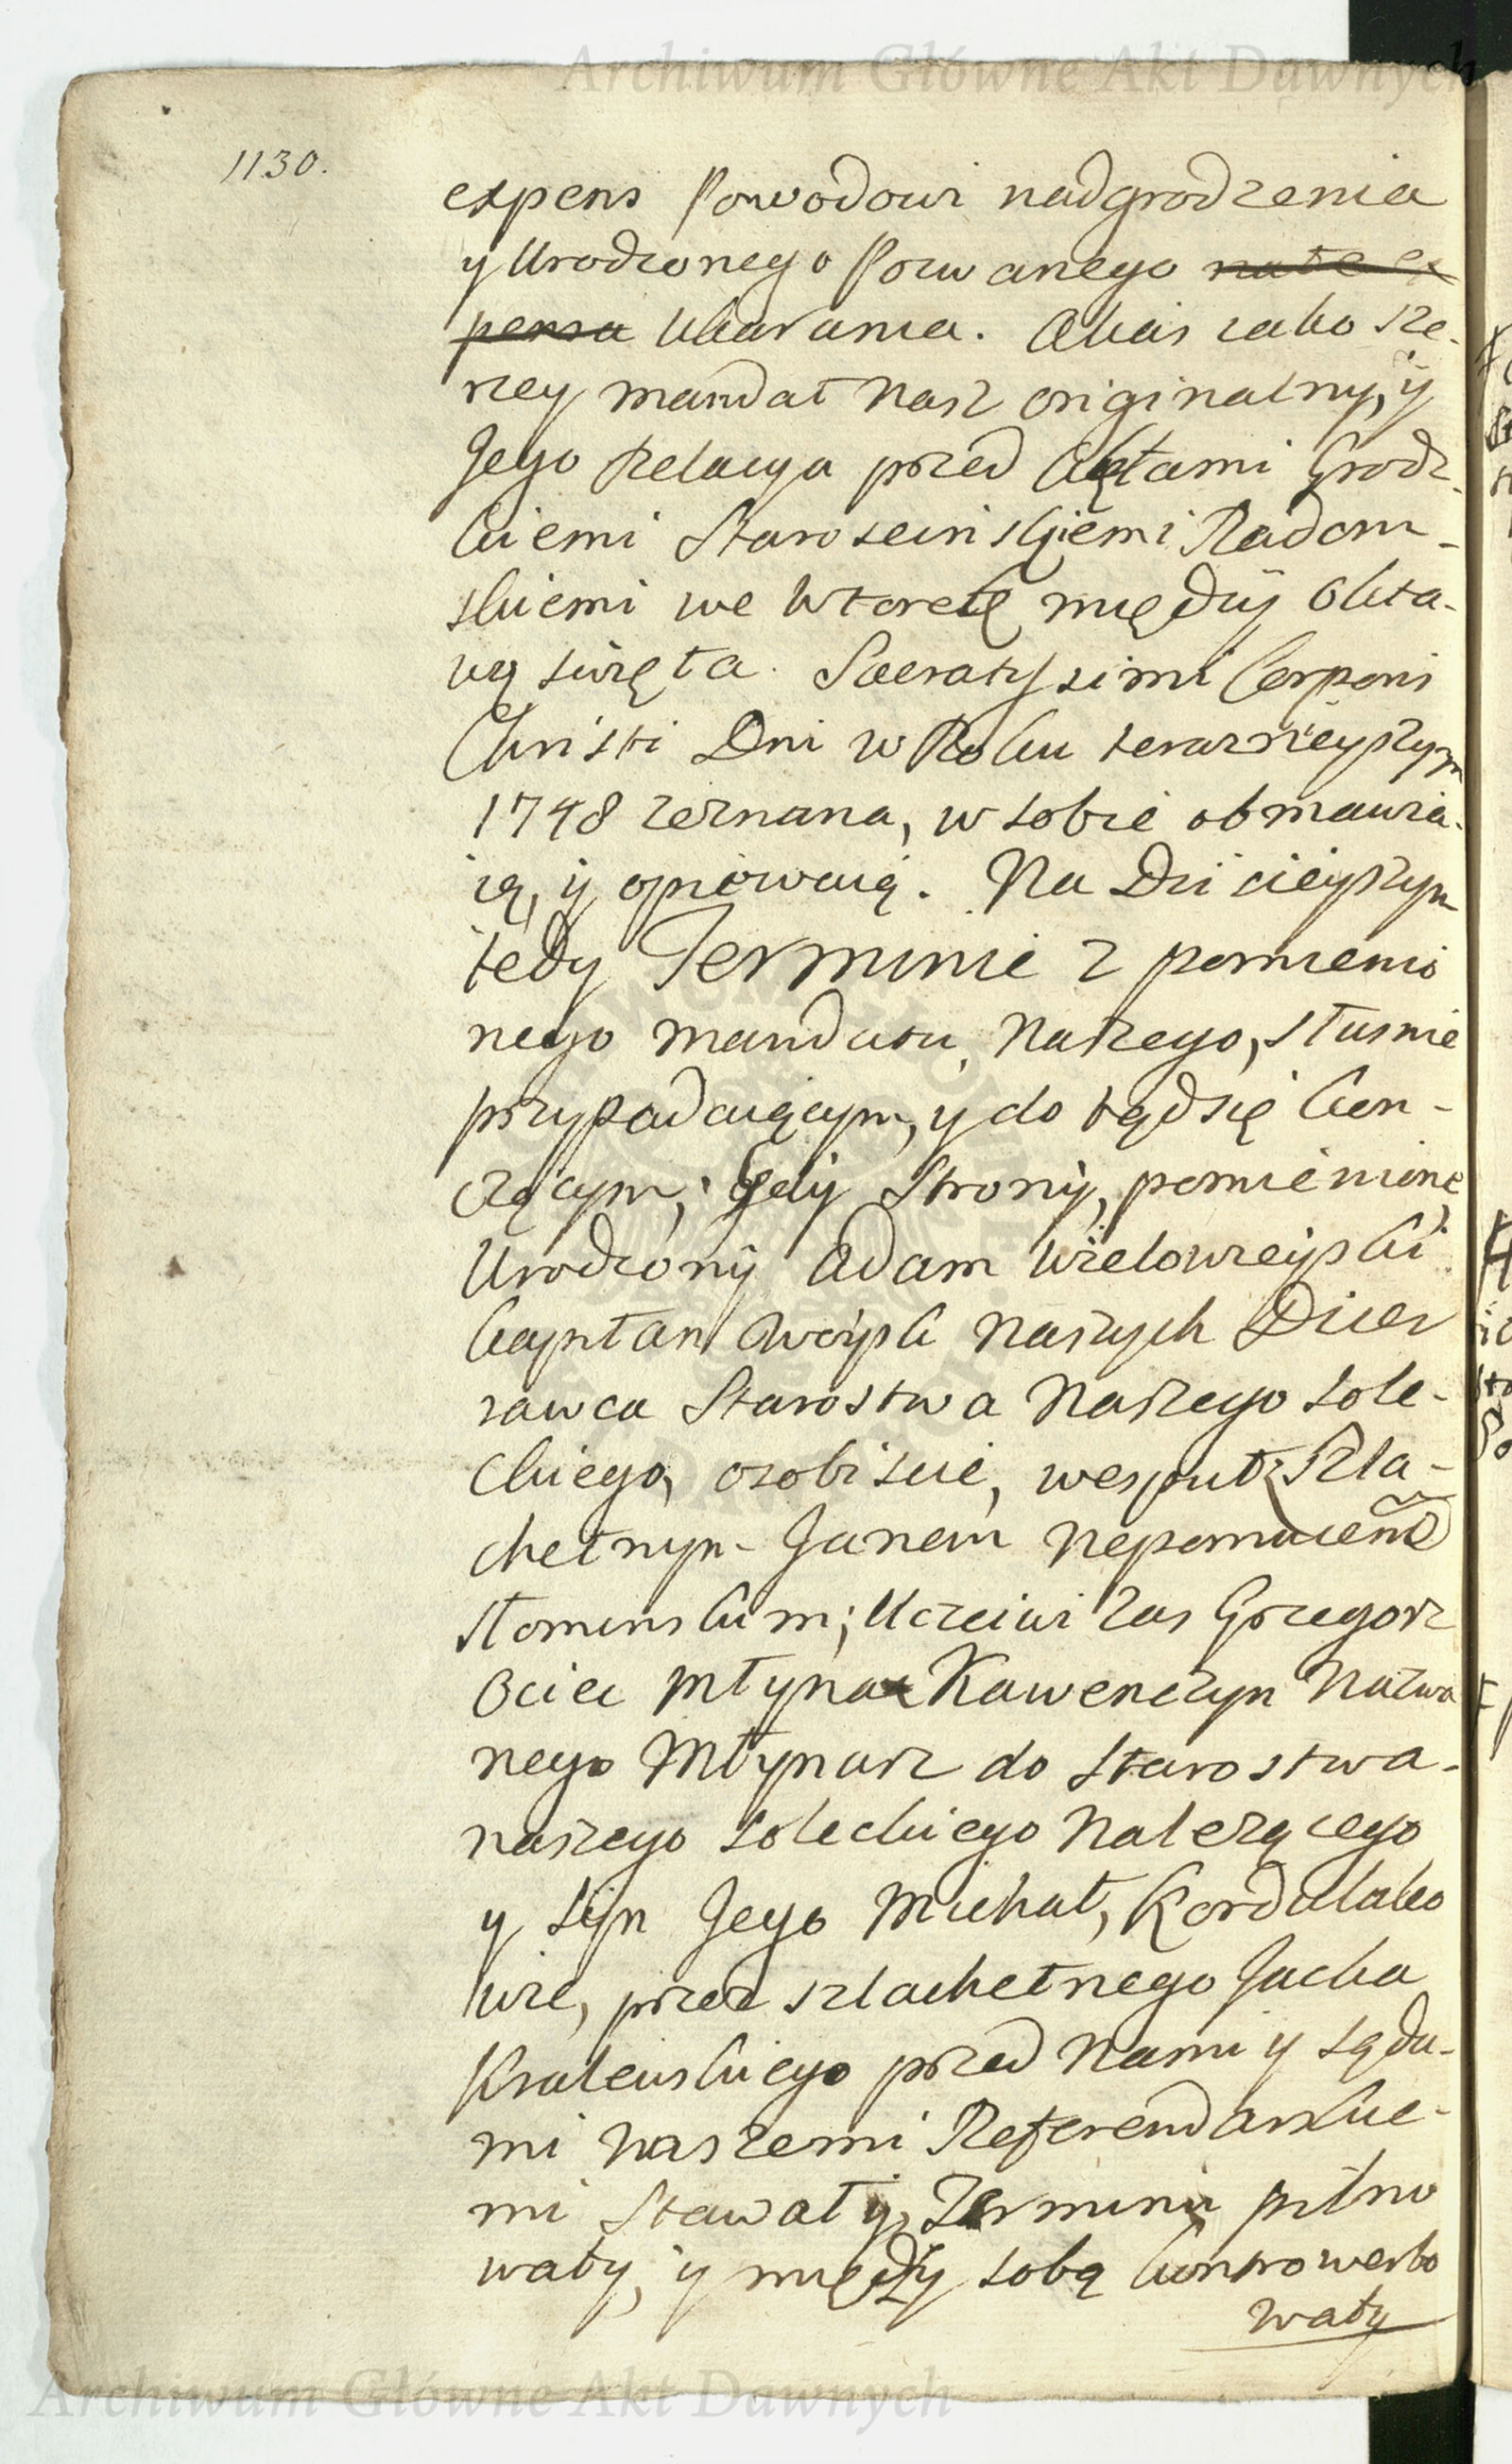 Archiwum Główne Akt Dawnych
1130.
expens Powodowi nadgrodzenia
y Urodzonego Pozwanego na te ex
pensa Ukarania. Akas iako sze-
rzey mandat Nasz originalny, y
Jego Relacya przed Aktami Grodz-
kiemi Starosciniskiemi Radom-
skiemi we Wtorek między Okta-
wą święta Sacratyssimi Corporis
Christi Dni w Roku teraznieyszym
1748 zeznana, w sobie obmawia-
ią, y opiewaią. Na Dzisieyszym
tedy Terminie z pomienio
nego mandatu Naszego, słusnie
przypadaiącym, y do tąd się kon-
czącym; Gdy Strony, pomienione,
Urodzony Adam Wielowieyski
Kapitan Woysk Naszych Dzier
zawca Starostwa Naszego Sole-
ckiego, osobiscie, wespuł z Szla-
chetnym Janem Nepomucenẽ
Słominskim; Uczciwi zas Grzegorz
Ociec Młyna Kawenczyn Nazwa
nego Młynarz do Starostwa
naszego Soleckiego Należącego
y Syn Jego Michał, Kordulako
wie, przez szlachetnego Jacka
Krulewskiego przed Nami y Sąda-
mi Naszemi Referendarskie-
mi Stawały, Terminu pilno
wały, y między sobą kontrowerto
wały
Archiwum Główne Akt Dawnych